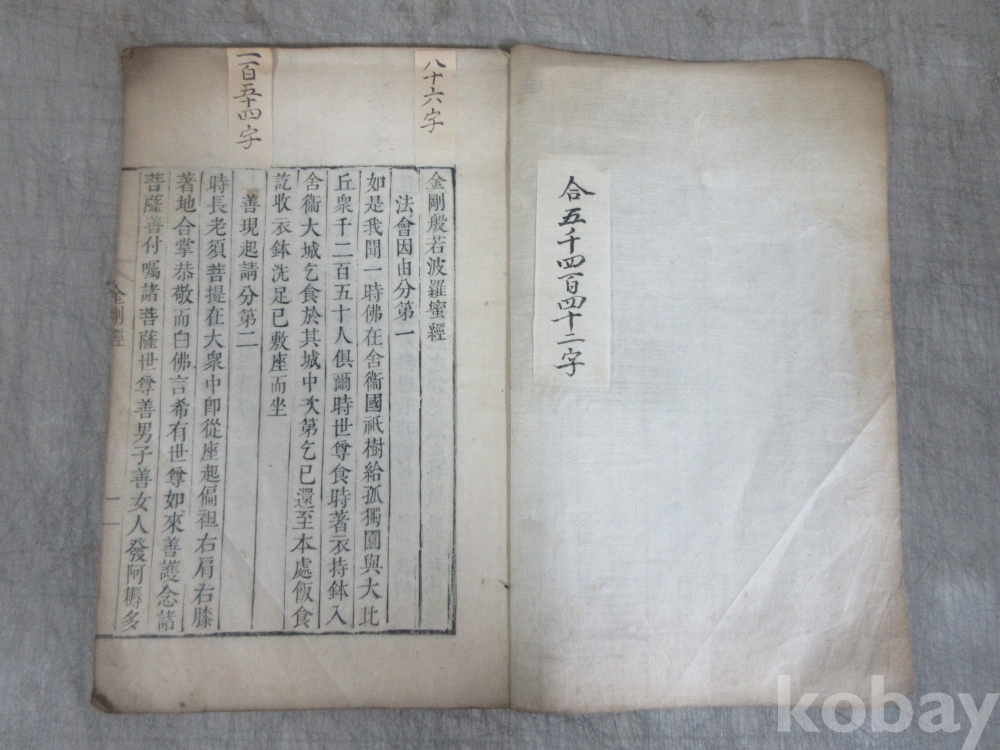 合五千四百四十二字
八十六字
金剛般若波羅蜜經
法會因由分第一
如是我聞一時佛在舍衞國祇樹給孤獨園與大比
丘衆千二百五十人俱爾時世尊食時著衣持鉢入
舍衞大城乞食於其城中次第乞已還至本處飯食
訖收衣鉢洗足已敷座而坐
二百五十四字
善現起請分第二
時長老須菩提在大衆中卽從座起偏袒右肩右膝
著地合掌恭敬而白佛言希有世尊如來善護念諸
菩薩善付囑諸菩薩世尊善男子善女人發阿耨多
金剛經
一
kobay